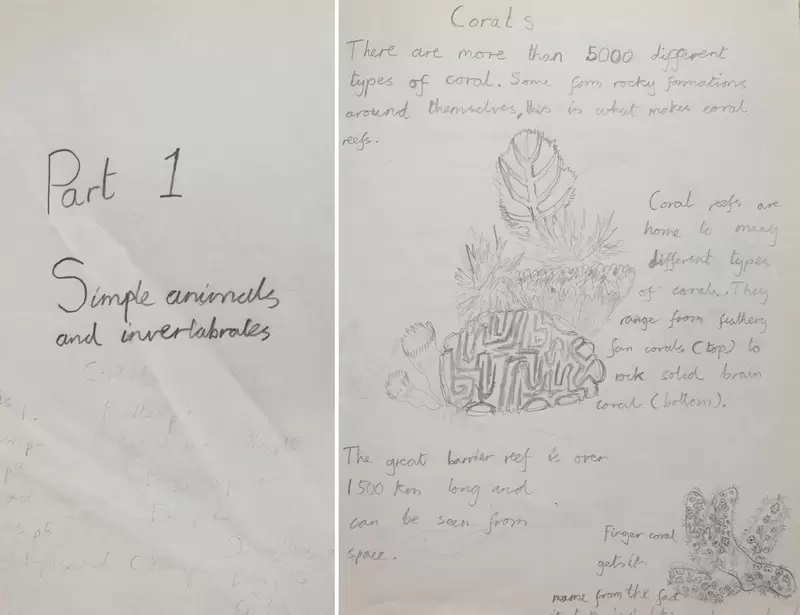 Part 1
Simple animals
and invertabrates
Corals
There are more than 5000 different
types of coral. Some form rocky formations
around themselves, this is what makes coral
reefs.
Coral reefs are
home to many
different types
of corals. They
range from feathery
fan corals (top) to
rock solid brain
coral (bottom).
The great barrier reef is over
1500 km long and
can be seen from
space.
Finger coral
gets it
name from the fact